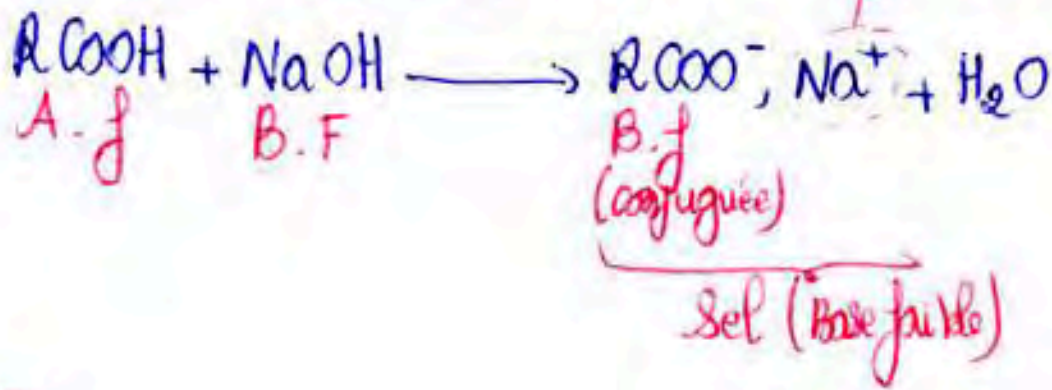 RCOOH + NaOH → RCOO⁻, Na⁺ + H₂O
A.f B.F B.f
(conjuguée)
Sel (Base faible)